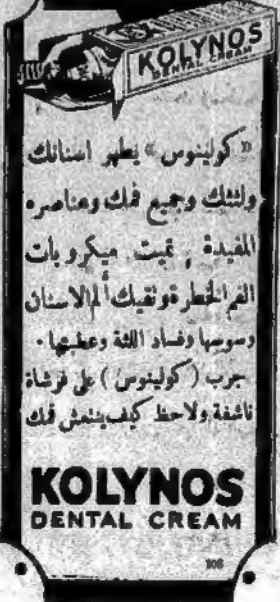 KOLYNOS
DENTAL CREAM
« كولينوس » يطهر اسنانك
ولثتك وجميع فمك وعناصره
المفيدة , تميت ميكروبات
الفم الخطرة وتقيك ألم الاسنان
وسوسها وفساد اللثة وعطبها .
جرب ( كولينوس ) على فرشاة
ناشفة ولاحظ كيف ينتعش فمك
KOLYNOS
DENTAL CREAM